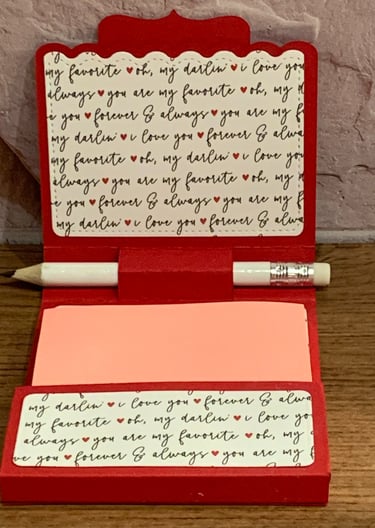 my favorite ♥ oh, my darlin' ♥ i love you
always ♥ you are my favorite ♥ oh, my
you ♥ forever & always ♥ you are my f
my darlin' ♥ i love you ♥ forever & alwa
my favorite ♥ oh, my darlin' ♥ i love you
always ♥ you are my favorite ♥ oh, my
e you ♥ forever & always ♥ you are my
my darlin' ♥ i love you ♥ forever & alwa
my darlin' ♥ i love you ♥ forever & alwa
my favorite ♥ oh, my darlin' ♥ i love
always ♥ you are my favorite ♥ oh, my
ve you ♥ forever & always ♥ you are my f